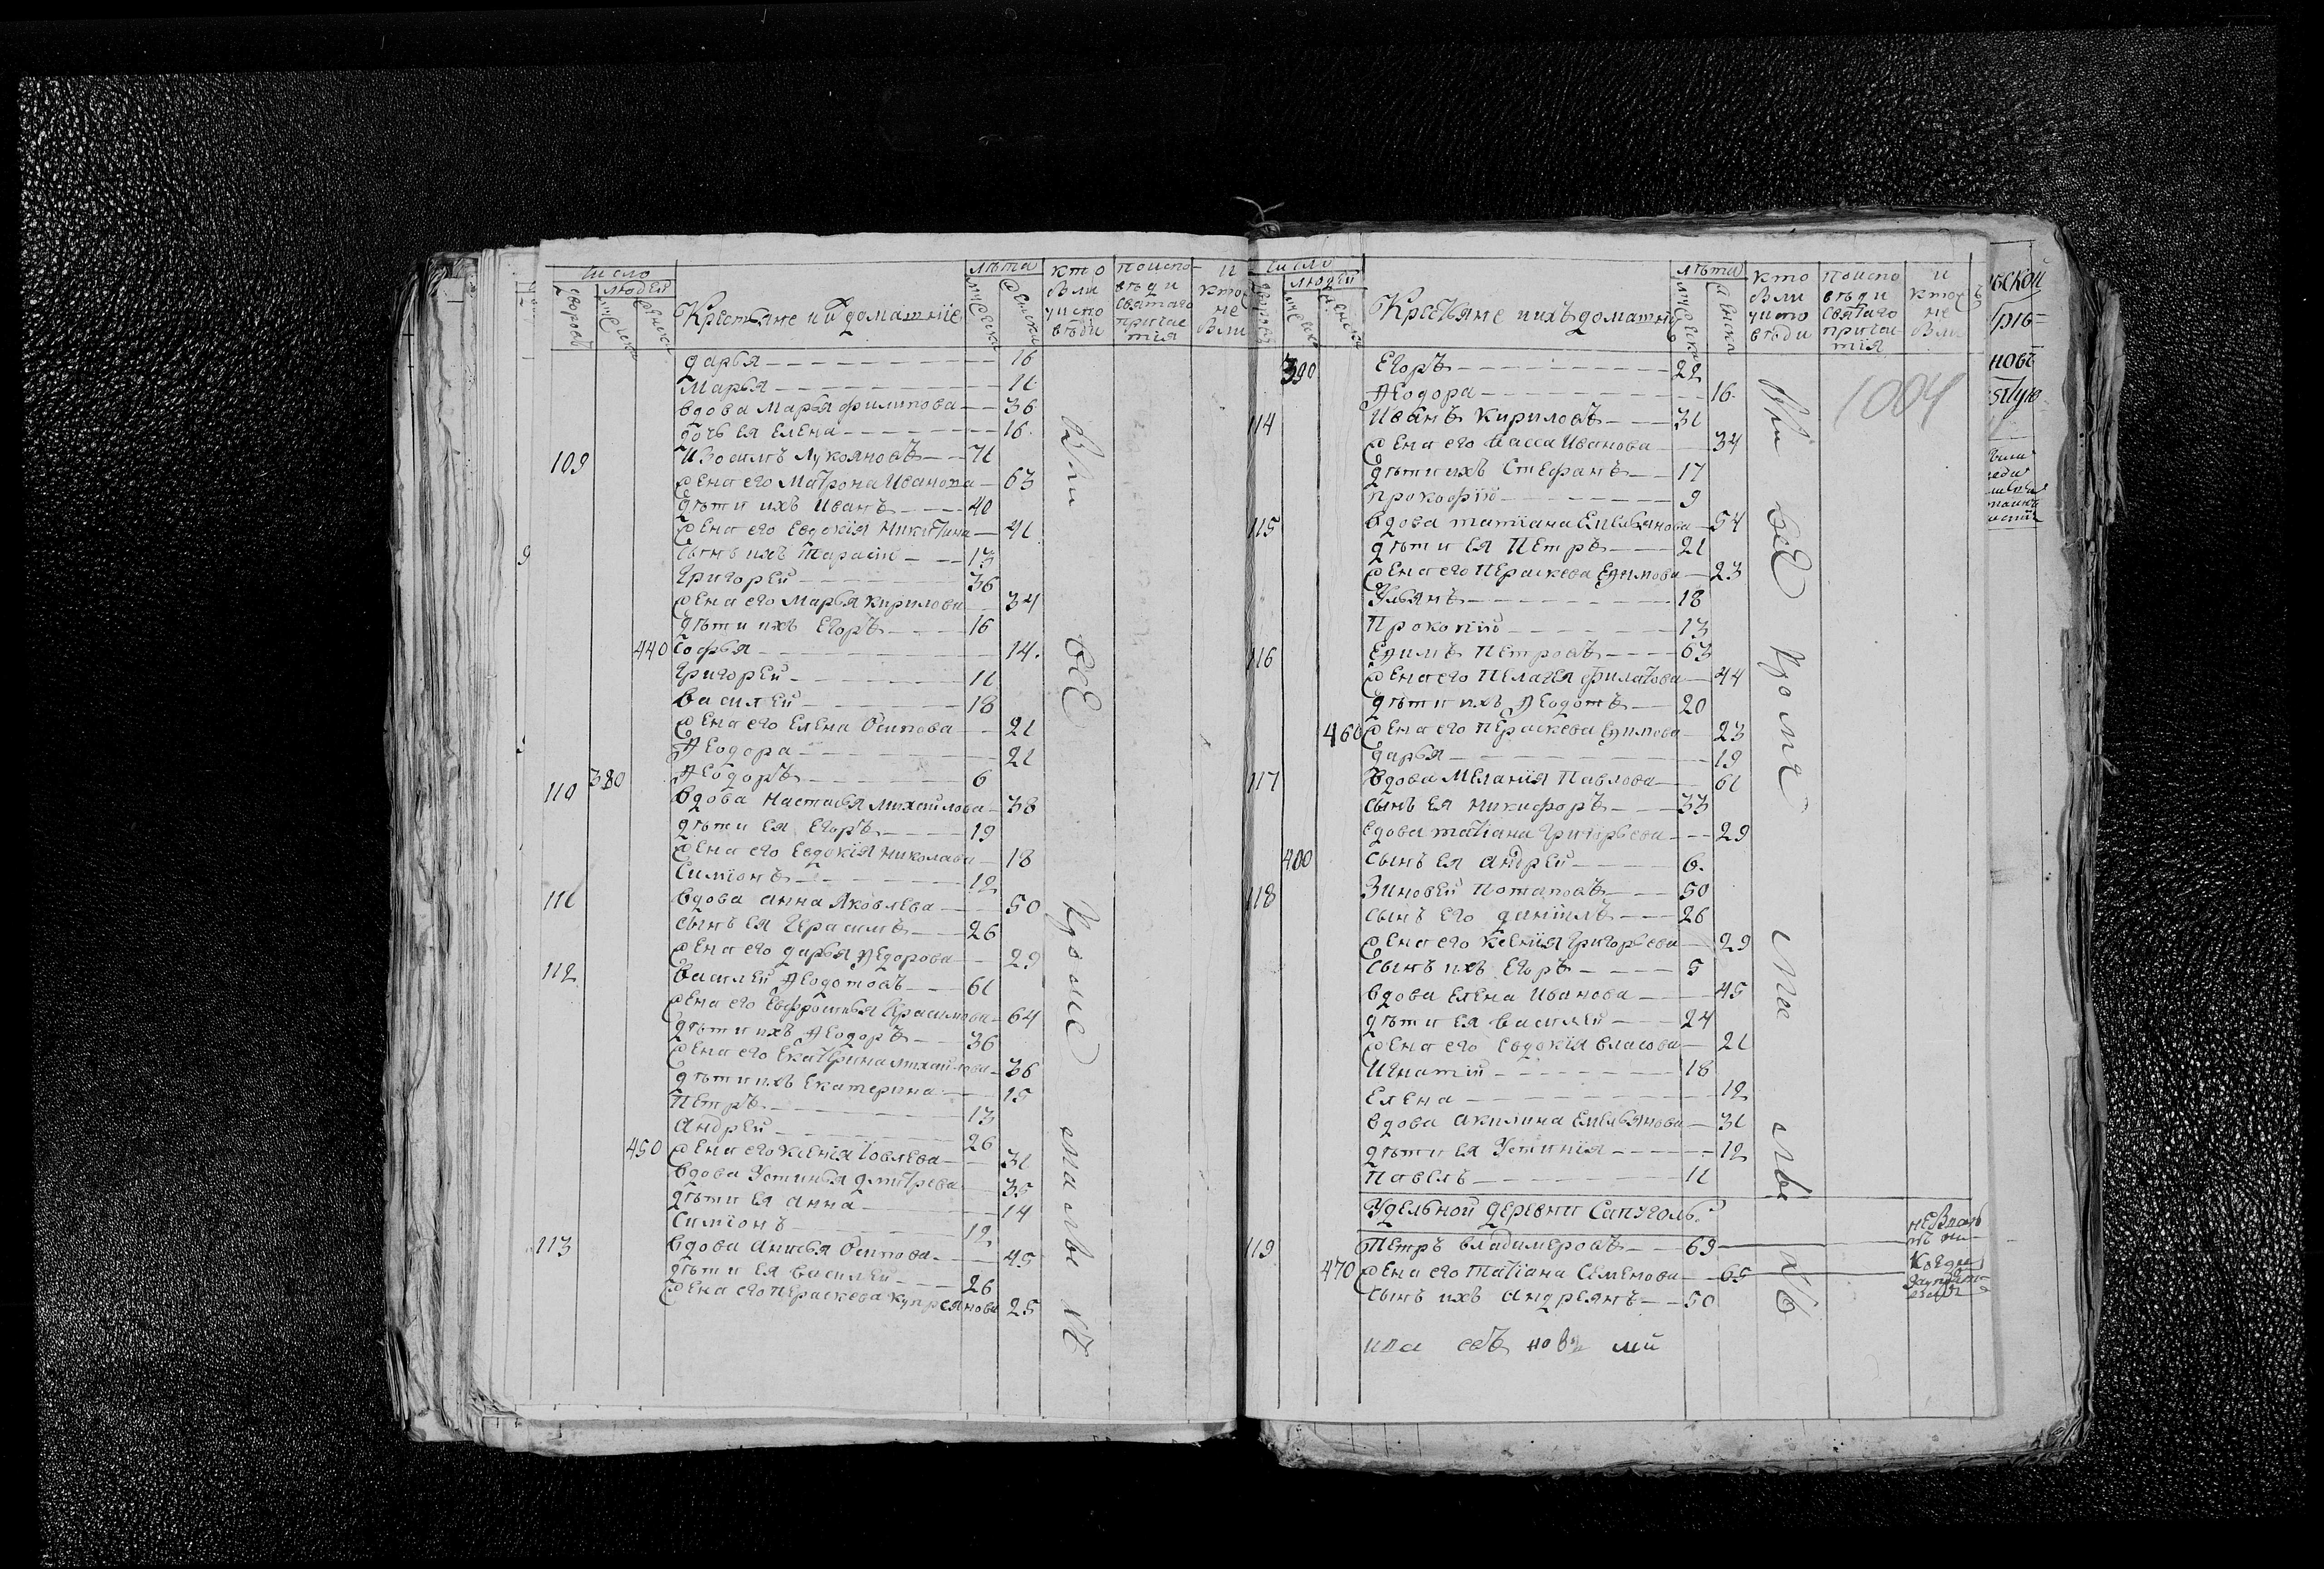 число
людей
лѣта
Крестьяне и их домашніе
кто
были
у испо
вѣди
поиспо-
вѣди
святаго
причас
тія
и
кто
не
были
Дарья 16
Марья 11
вдова Марья Филипова 36
дочь ея Елена 16
109 Изосимъ Лукояновъ 71
жена его Матрона Иванова 63
дѣти ихъ Иванъ 40
жена его Евдокія Никитина 41
сынъ ихъ Тарасій 13
Григорей 36
жена его Марья Кирилова 34
дѣти ихъ Егоръ 16
440 Софья 14
Григорей 11
Василей 18
жена его Елена Осипова 21
Ѳеодора 21
380 Ѳеодоръ 6
110 вдова Настасья Михайлова 38
дѣти ея Егоръ 19
жена его Евдокія Николаева 18
Симіонъ 12
111 вдова Анна Яковлева 50
сынъ ея Герасимъ 26
жена его Дарья Ѳедорова 29
112 Василей Ѳеодотовъ 61
жена его Евфросинья Герасимова 64
дѣти ихъ Ѳеодоръ 36
жена его Екатерина Михайлова 36
дѣти ихъ Екатерина 15
Петръ 13
Андрей 26
450 жена его Ксенія Іовлева 31
вдова Устинья Дмитрева 35
дѣти ея Анна 14
Симіонъ 12
113 вдова Анисья Осипова 45
дѣти ея Василей 26
жена его Пераскева Купреянова 25
были
все
кроме
малы
число
людей
Крестьяне и ихъ домашніе
лѣта
кто
были
у испо
вѣди
поиспо
вѣди
святаго
причас
тія
и
кто
не
были
1004
390 Егоръ 22
Ѳеодора 16
114 Иванъ Кириловъ 31
жена его Васса Иванова 34
дѣти ихъ Стефанъ 17
Прокофій 9
115 вдова Татіана Емельянова 54
дѣти ея Петръ 21
жена его Пераскева Еѳимова 23
Ульянъ 18
Прокопій 13
116 Еѳимъ Петровъ 63
жена его Пелагея Филатова 44
дѣти ихъ Ѳеодотъ 20
460 жена его Пераскева Еѳимова 23
Дарья 19
117 вдова Меланія Павлова 61
сынъ ея Никифоръ 33
вдова Татіана Григорьева 29
400 сынъ ея Андрей 6
118 Зиновей Потаповъ 50
сынъ его Даніилъ 26
жена его Ксенія Григорьева 29
сынъ ихъ Егоръ 5
вдова Елена Иванова 45
дѣти ея Василей 24
жена его Евдокія Власова 21
Игнатій 18
Елена 12
вдова Акилина Емельянова 31
дѣти ея Устинія 12
Павелъ 11
Удельной деревни Сапуголь
119 Петръ Владимеровъ 69
470 жена его Татіана Семенова 65
сынъ ихъ Андреянъ 50
все
кроме
ской
новъ